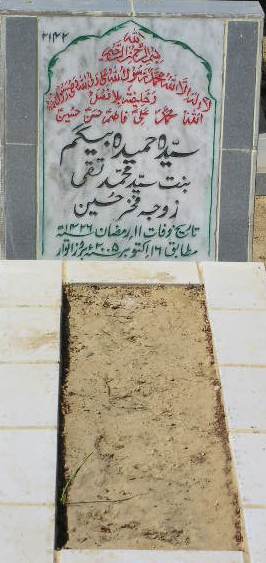 ۲۱۴۲
اللہ
بسم اللہ الرحمن الرحیم
لا الہ الا اللہ محمد رسول اللہ علی ولی اللہ وصی رسول اللہ
و خلیفتہ بلا فصل
اللہ محمد علی فاطمہ حسن حسین
سیدہ حمیدہ بیگم
بنت سید محمد تقی
زوجہ فخر حسین
تاریخ وفات ۱۱ رمضان ۱۴۲۶ھ
مطابق ۱۶ اکتوبر ۲۰۰۵ء بروز اتوار